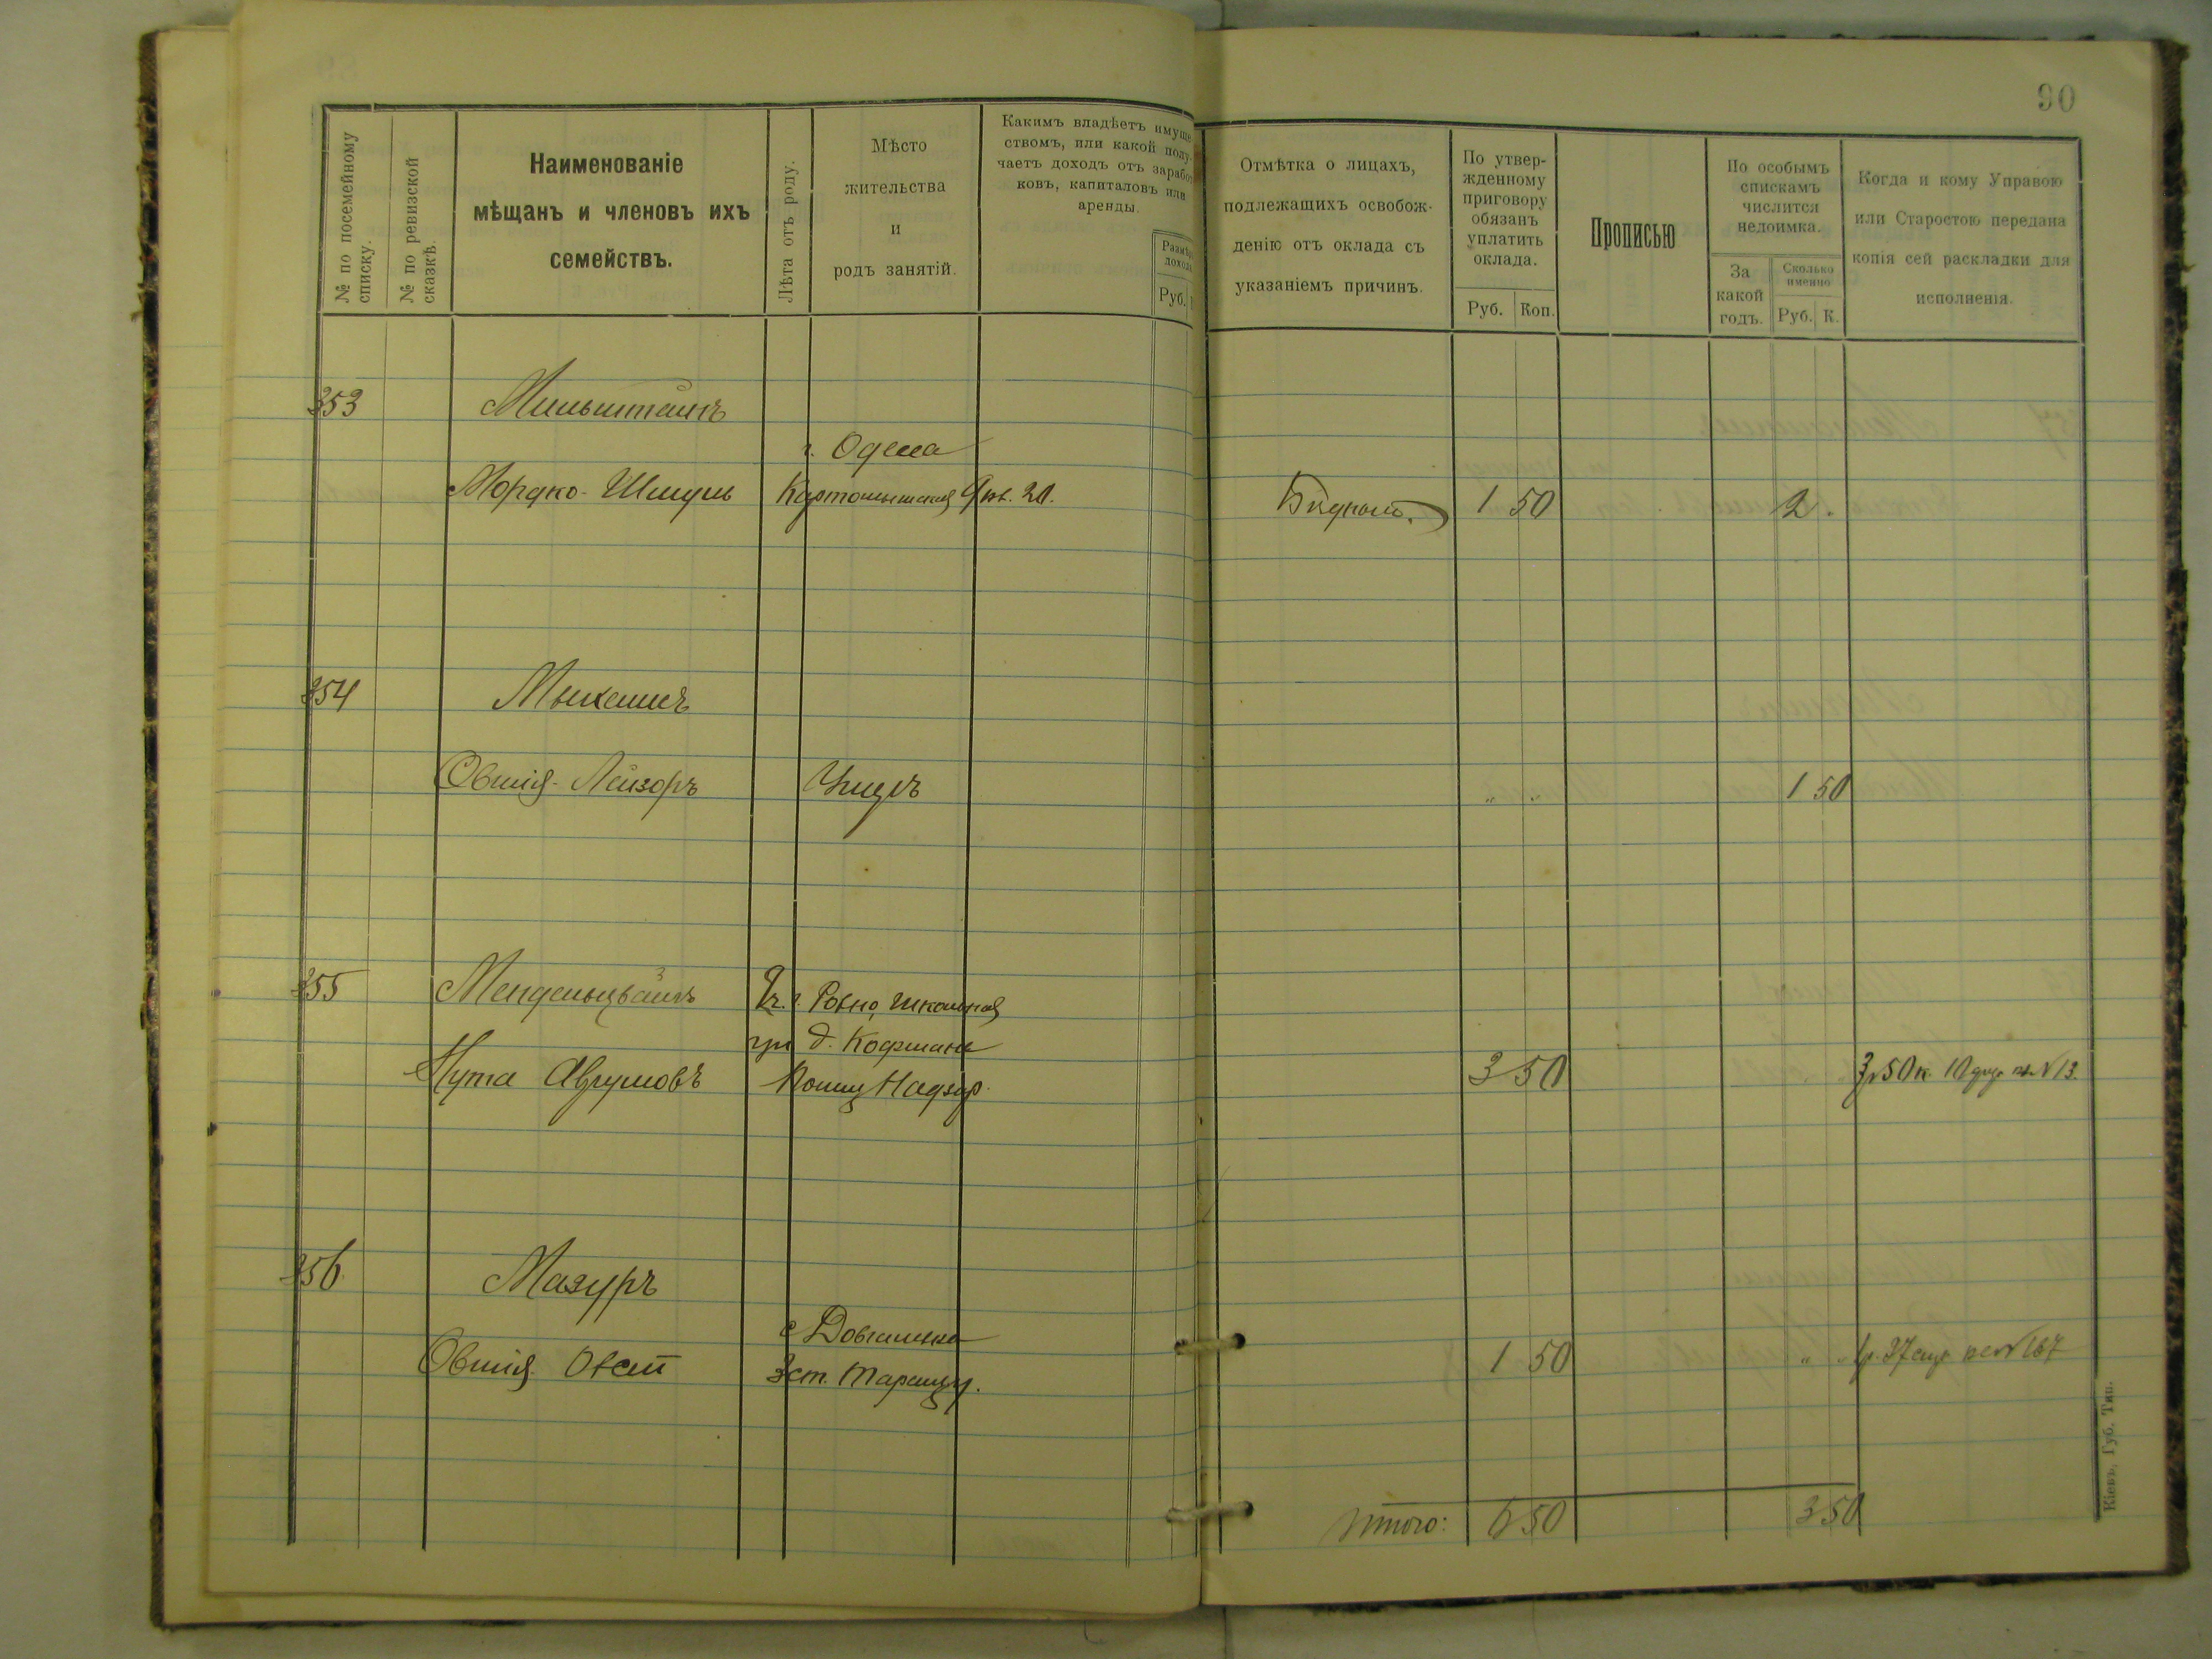 90
№ по посемейному списку.
№ по ревизской сказкѣ.
Наименованіе
мѣщанъ и членовъ ихъ
семействъ.
Лѣта отъ роду.
Мѣсто
жительства
и
родъ занятій.
Какимъ владѣетъ имуще
ствомъ, или какой полу
чаетъ доходъ отъ зарабо
ковъ, капиталовъ или
аренды.
Размѣръ
дохода
Руб.
Отмѣтка о лицахъ,
подлежащихъ освобож-
денію отъ оклада съ
указаніемъ причинъ.
По утвер-
жденному
приговору
обязанъ
уплатить
оклада.
Руб. Коп.
Прописью
По особымъ
спискамъ
числится
недоимка.
За
какой
годъ.
Сколько
именно
Руб. К.
Когда и кому Управою
или Старостою передана
копія сей раскладки для
исполненія.
353 Мильштейнъ
г. Одесса
Мордко-Шмуль кв. 20. 1 50 2.
354
Овшія-Лейзоръ 1 50
355 г. Ровно, Школьная
д. Кофмана
Нута Аврумовъ Надзор. 3 50 3р 50к. №13.
356 Мазуръ
Овшія 3 ст. Таращ у. 1 50 №167
Итого: 6 50 3 50
Кіевъ, Губ. Тип.